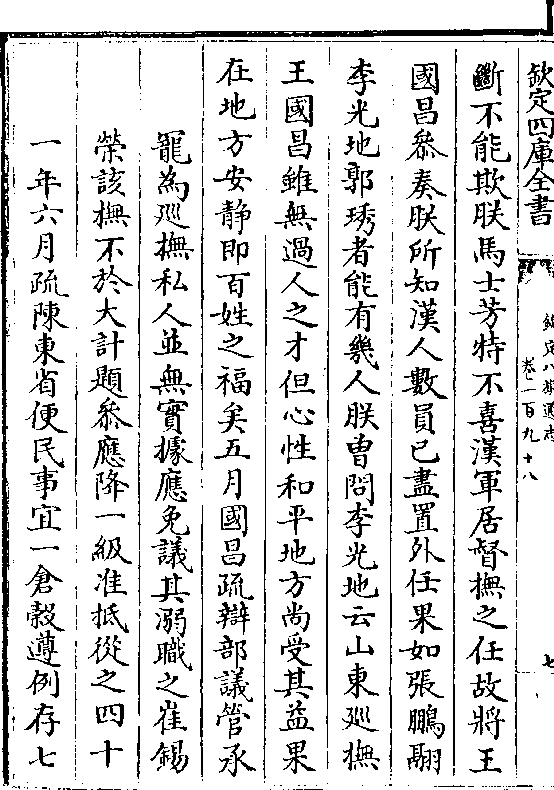 欽定四庫全書
欽定八旗通志
卷二百九十八
七
斷不能欺朕馬士芳特不喜漢軍居督撫之任故將王
國昌叅奏朕所知漢人數員已盡置外任果如張鵬翮
李光地郭琇者能有幾人朕曾問李光地云山東廵撫
王國昌雖無過人之才但心性和平地方尚受其益果
在地方安靜即百姓之福矣五月國昌疏辯部議管承
寵為廵撫私人並無實據應免議其溺職之崔錫
榮該撫不於大計題叅應降一級准抵從之四十
一年六月疏陳東省便民事宜一倉穀遵例存七